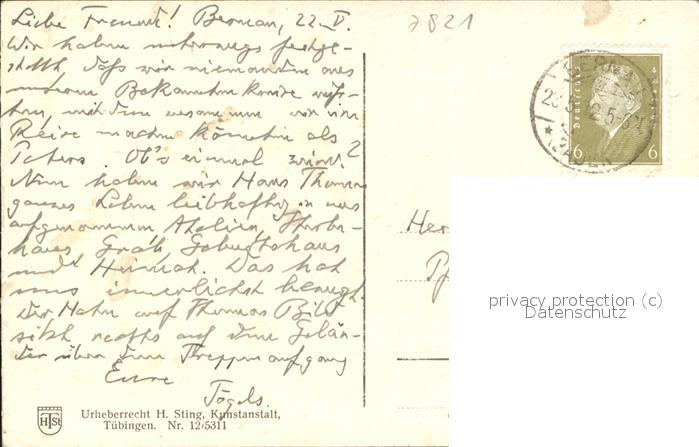 Liebe Freunde! Bernau, 22. V.
7821
Wir haben unterwegs festge-
stellt, daß wir niemanden aus
unserem Bekanntenkreise wüß-
ten, mit dem zusammen wir eine
Reise machen könnten als
Peters. Ob's einmal wird?
Nun haben wir Hans Thomas
ganzes Leben leibhaftig in uns
aufgenommen, Atelier, Sterbe-
haus, Grab, Geburtshaus
und Heimat. Das hat
uns innerlichst bewegt.
Der Hahn auf Thomas Bild
sitzt rechts auf dem Gelän-
der über dem Treppenaufgang
Eure
Tögels.
Urheberrecht H. Sting, Kunstanstalt,
Tübingen. Nr. 12/5311
HSt
Deutsches
6 6
BERNAU
BADEN
Her
Pf
privacy protection (c)
Datenschutz